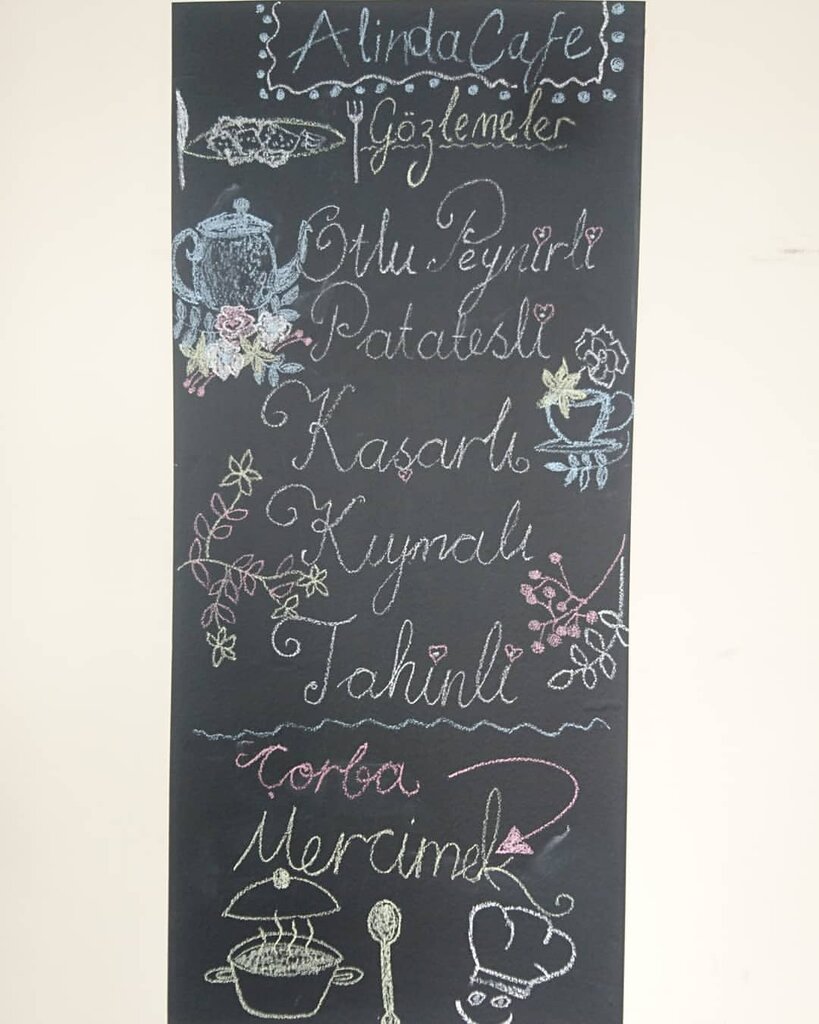 Alinda Cafe
Gözlemeler
Otlu Peynirli
Patatesli
Kaşarlı
Kıymalı
Tahinli
Çorba
Mercimek